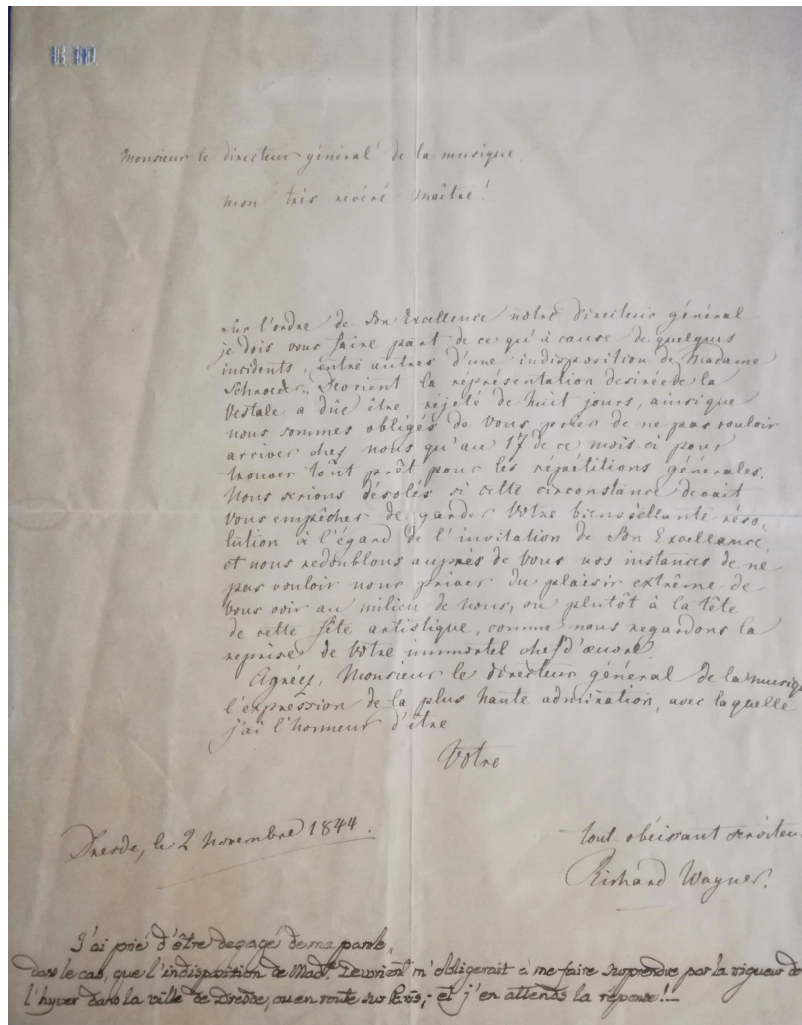 Monsieur le directeur général de la musique.
mon très révéré Maître!
Sur l'ordre de Son Excellence notre directeur général
je dois vous faire part de ce qu'à cause de quelques
incidents, entre autres d'une indisposition de Madame
Schroeder-Devrient la réprésentation desirée de la
Vestale a dûe être réjeté de huit jours, ainsique
nous sommes obligés de Vous prier de ne pas vouloir
arriver chez nous qu'au 17 de ce mois-ci pour
trouver tout prêt pour les répétitions générales.
Nous serions désolés si cette circonstance devait
Vous empêcher de garder Votre bienveillante réso-
lution à l'égard de l'invitation de Son Excellence,
et nous redoublons auprès de Vous nos instances de ne
pas vouloir nous priver du plaisir extrême de
Vous voir au milieu de nous, ou plutôt à la tête
de cette fête artistique, comme nous regardons la
reprise de Votre immortel chef d'œuvre.
Agréez, Monsieur le directeur général de la musiqu
l'expression de la plus haute admiration, avec laquelle
j'ai l'honneur d'être
Votre
Dresde, le 2 Novembre 1844.
tout obéissant serviteu
Richard Wagner.
J'ai prié d'être degagé de ma parole,
dans le cas, que l'indisposition de Mad. Devrient m'obligerait à me faire surprendre par la rigueur de
l'hyver dans la ville de Dresde, ou en route sur Paris; et j'en attends la réponse!—